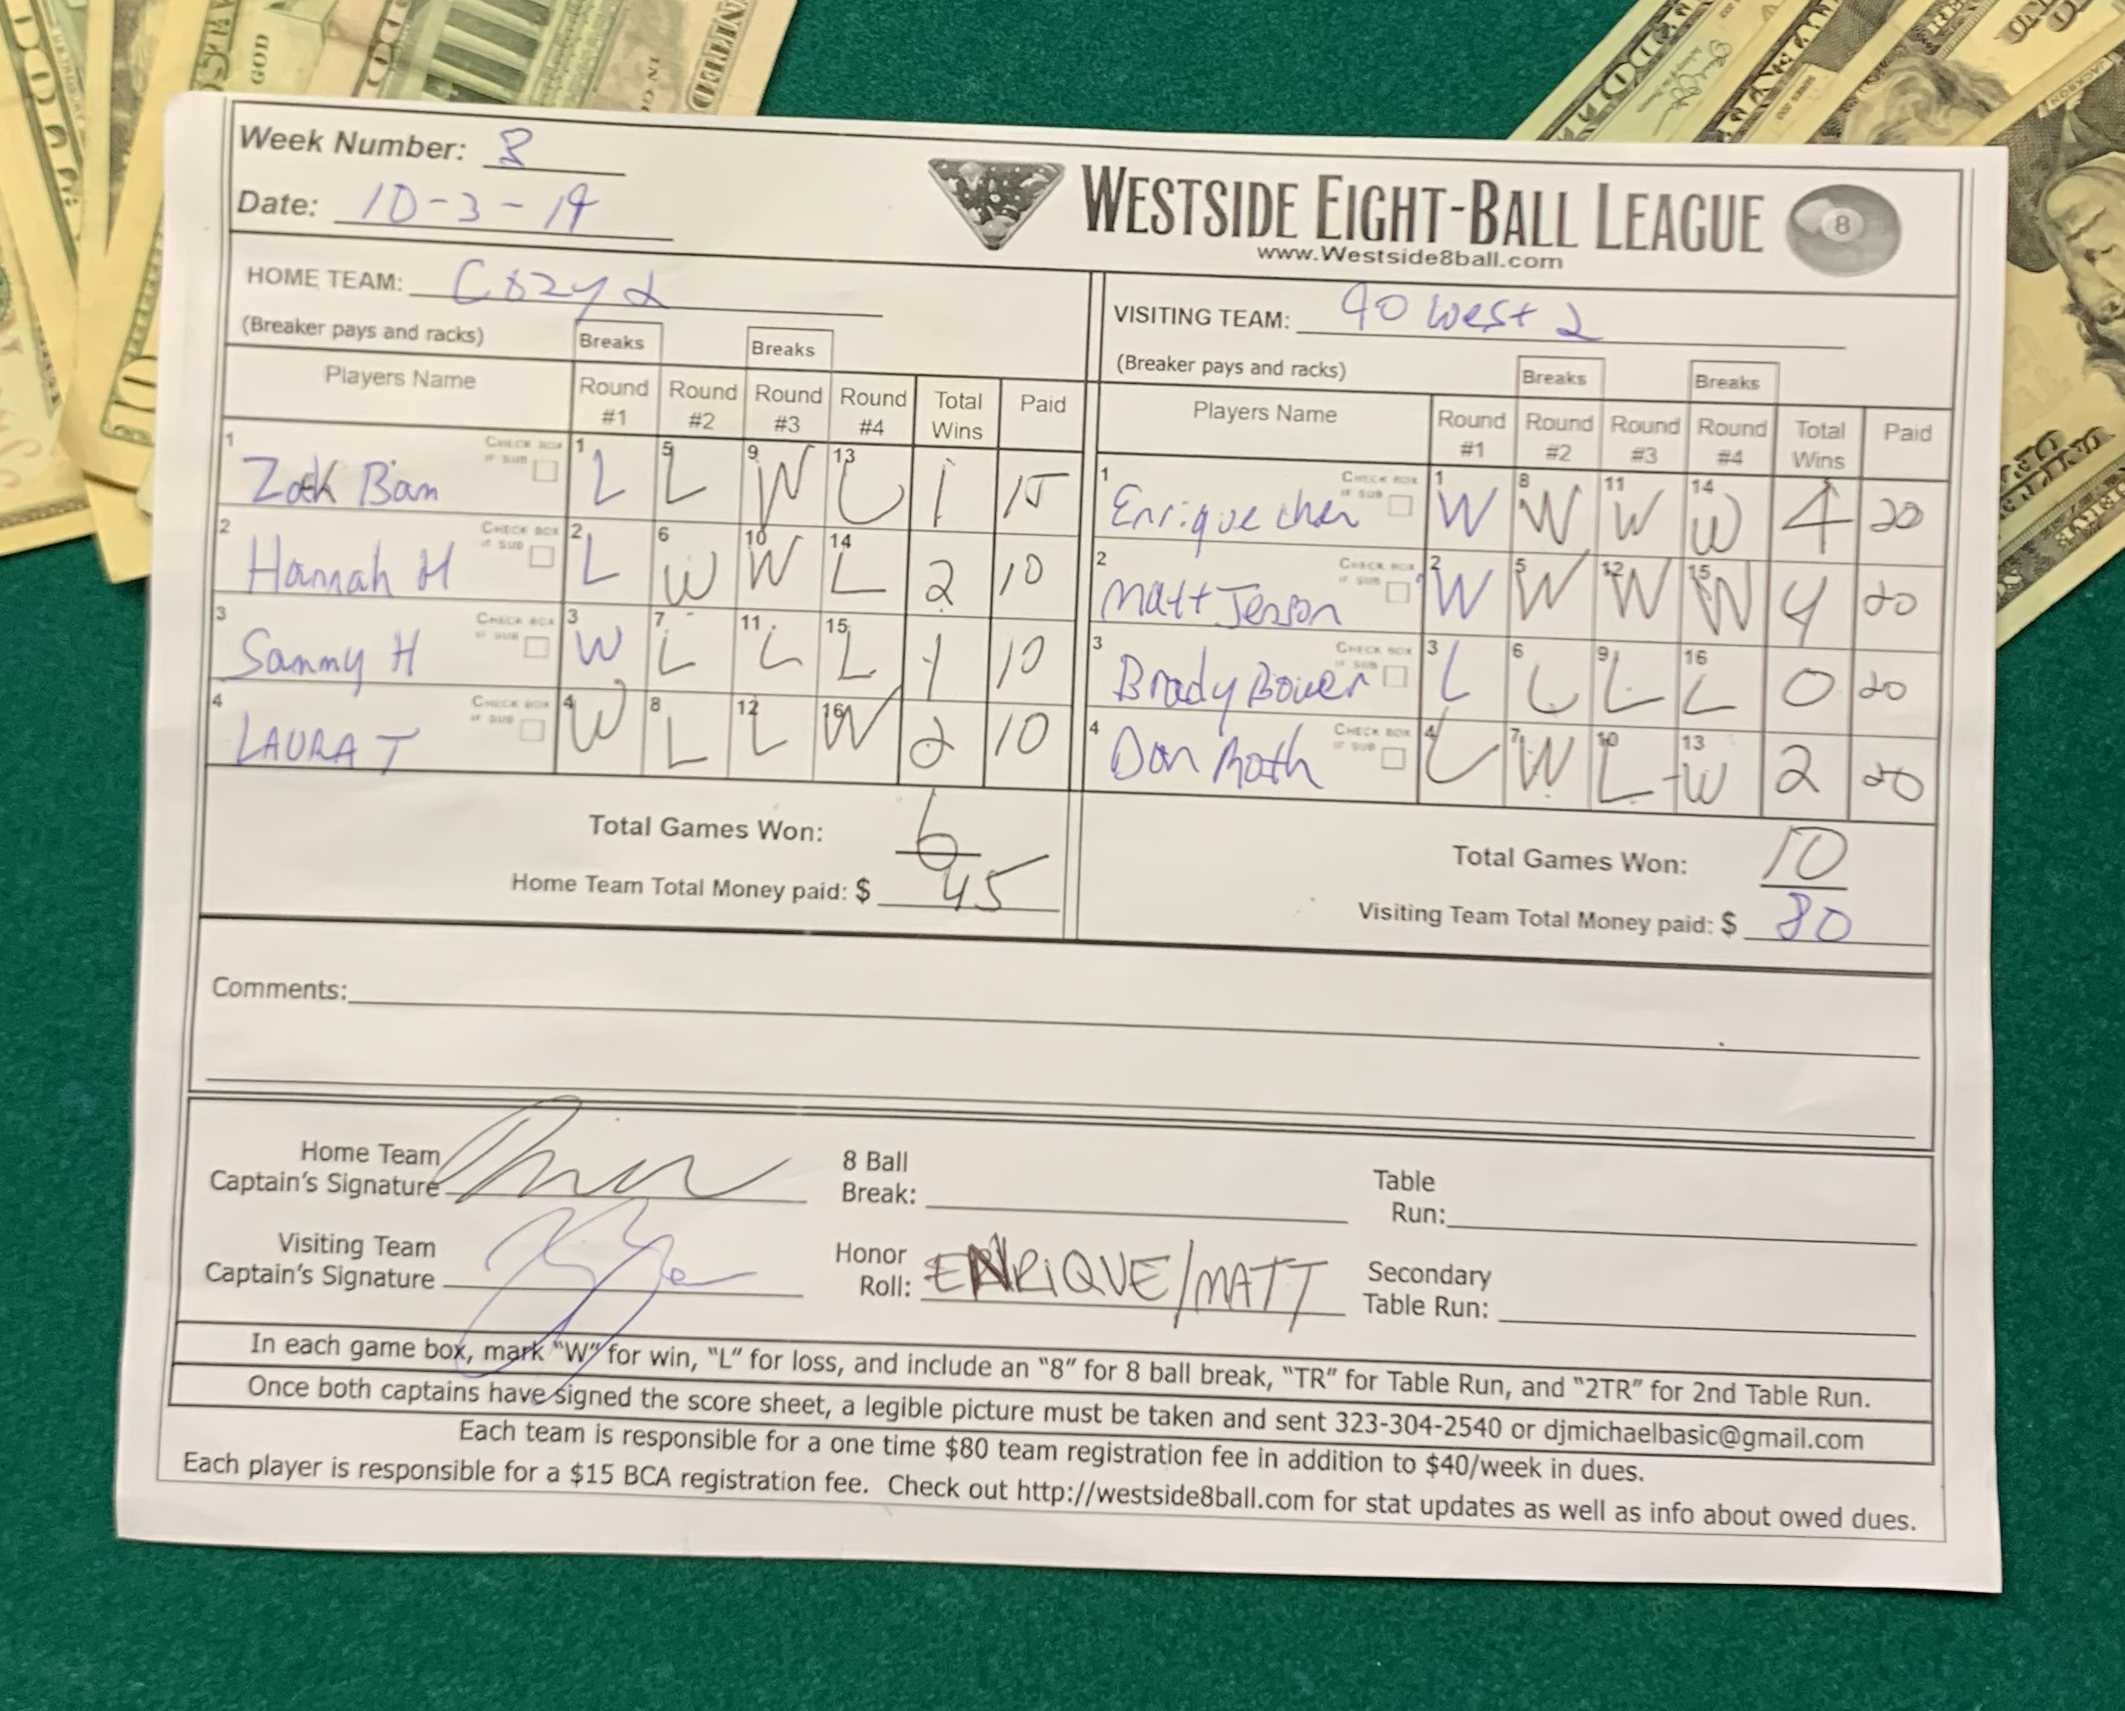 Week Number: 8
Date: 10-3-19
WESTSIDE EIGHT-BALL LEAGUE
8
www.Westside8ball.com
HOME TEAM: Cozy 2
(Breaker pays and racks) Breaks Breaks
Players Name Round #1 Round #2 Round #3 Round #4 Total Wins Paid
1 Zach Bam CHECK BOX IF SUB 1 L 5 L 9 W 13 L 1 15
2 Hannah H CHECK BOX IF SUB 2 L 6 W 10 W 14 L 2 10
3 Sammy H CHECK BOX IF SUB 3 W 7 L 11 L 15 L 1 10
4 LAURA T CHECK BOX IF SUB 4 W 8 L 12 L 16 W 2 10
Total Games Won: 6
Home Team Total Money paid: $ 45
VISITING TEAM: 90 West 2
(Breaker pays and racks) Breaks Breaks
Players Name Round #1 Round #2 Round #3 Round #4 Total Wins Paid
1 Enrique cher CHECK BOX IF SUB 1 W 8 W 11 W 14 W 4 20
2 Matt Jenson CHECK BOX IF SUB 2 W 5 W 12 W 15 W 4 20
3 Brady Bower CHECK BOX IF SUB 3 L 6 L 9 L 16 L 0 20
4 Dan Roth CHECK BOX IF SUB 4 L 7 W 10 L 13 W 2 20
Total Games Won: 10
Visiting Team Total Money paid: $ 80
Comments:
Home Team
Captain's Signature
8 Ball
Break:
Table
Run:
Visiting Team
Captain's Signature
Honor
Roll: ENRIQUE/MATT
Secondary
Table Run:
In each game box, mark "W" for win, "L" for loss, and include an "8" for 8 ball break, "TR" for Table Run, and "2TR" for 2nd Table Run.
Once both captains have signed the score sheet, a legible picture must be taken and sent 323-304-2540 or djmichaelbasic@gmail.com
Each team is responsible for a one time $80 team registration fee in addition to $40/week in dues.
Each player is responsible for a $15 BCA registration fee. Check out http://westside8ball.com for stat updates as well as info about owed dues.